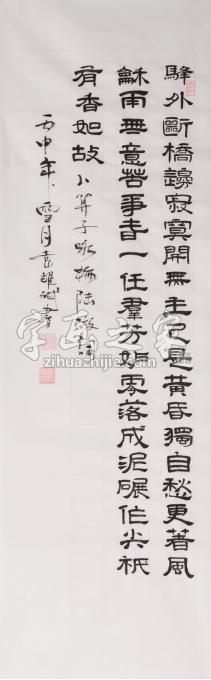 驛外斷橋邊寂寞開無主已是黃昏獨自愁更著風
龢雨無意苦爭春一任羣芳妒零落成泥碾作尘祇
有香如故 卜算子咏梅陆游词
丙申年雪月袁耀書
字画之家
zihuazhijie.com